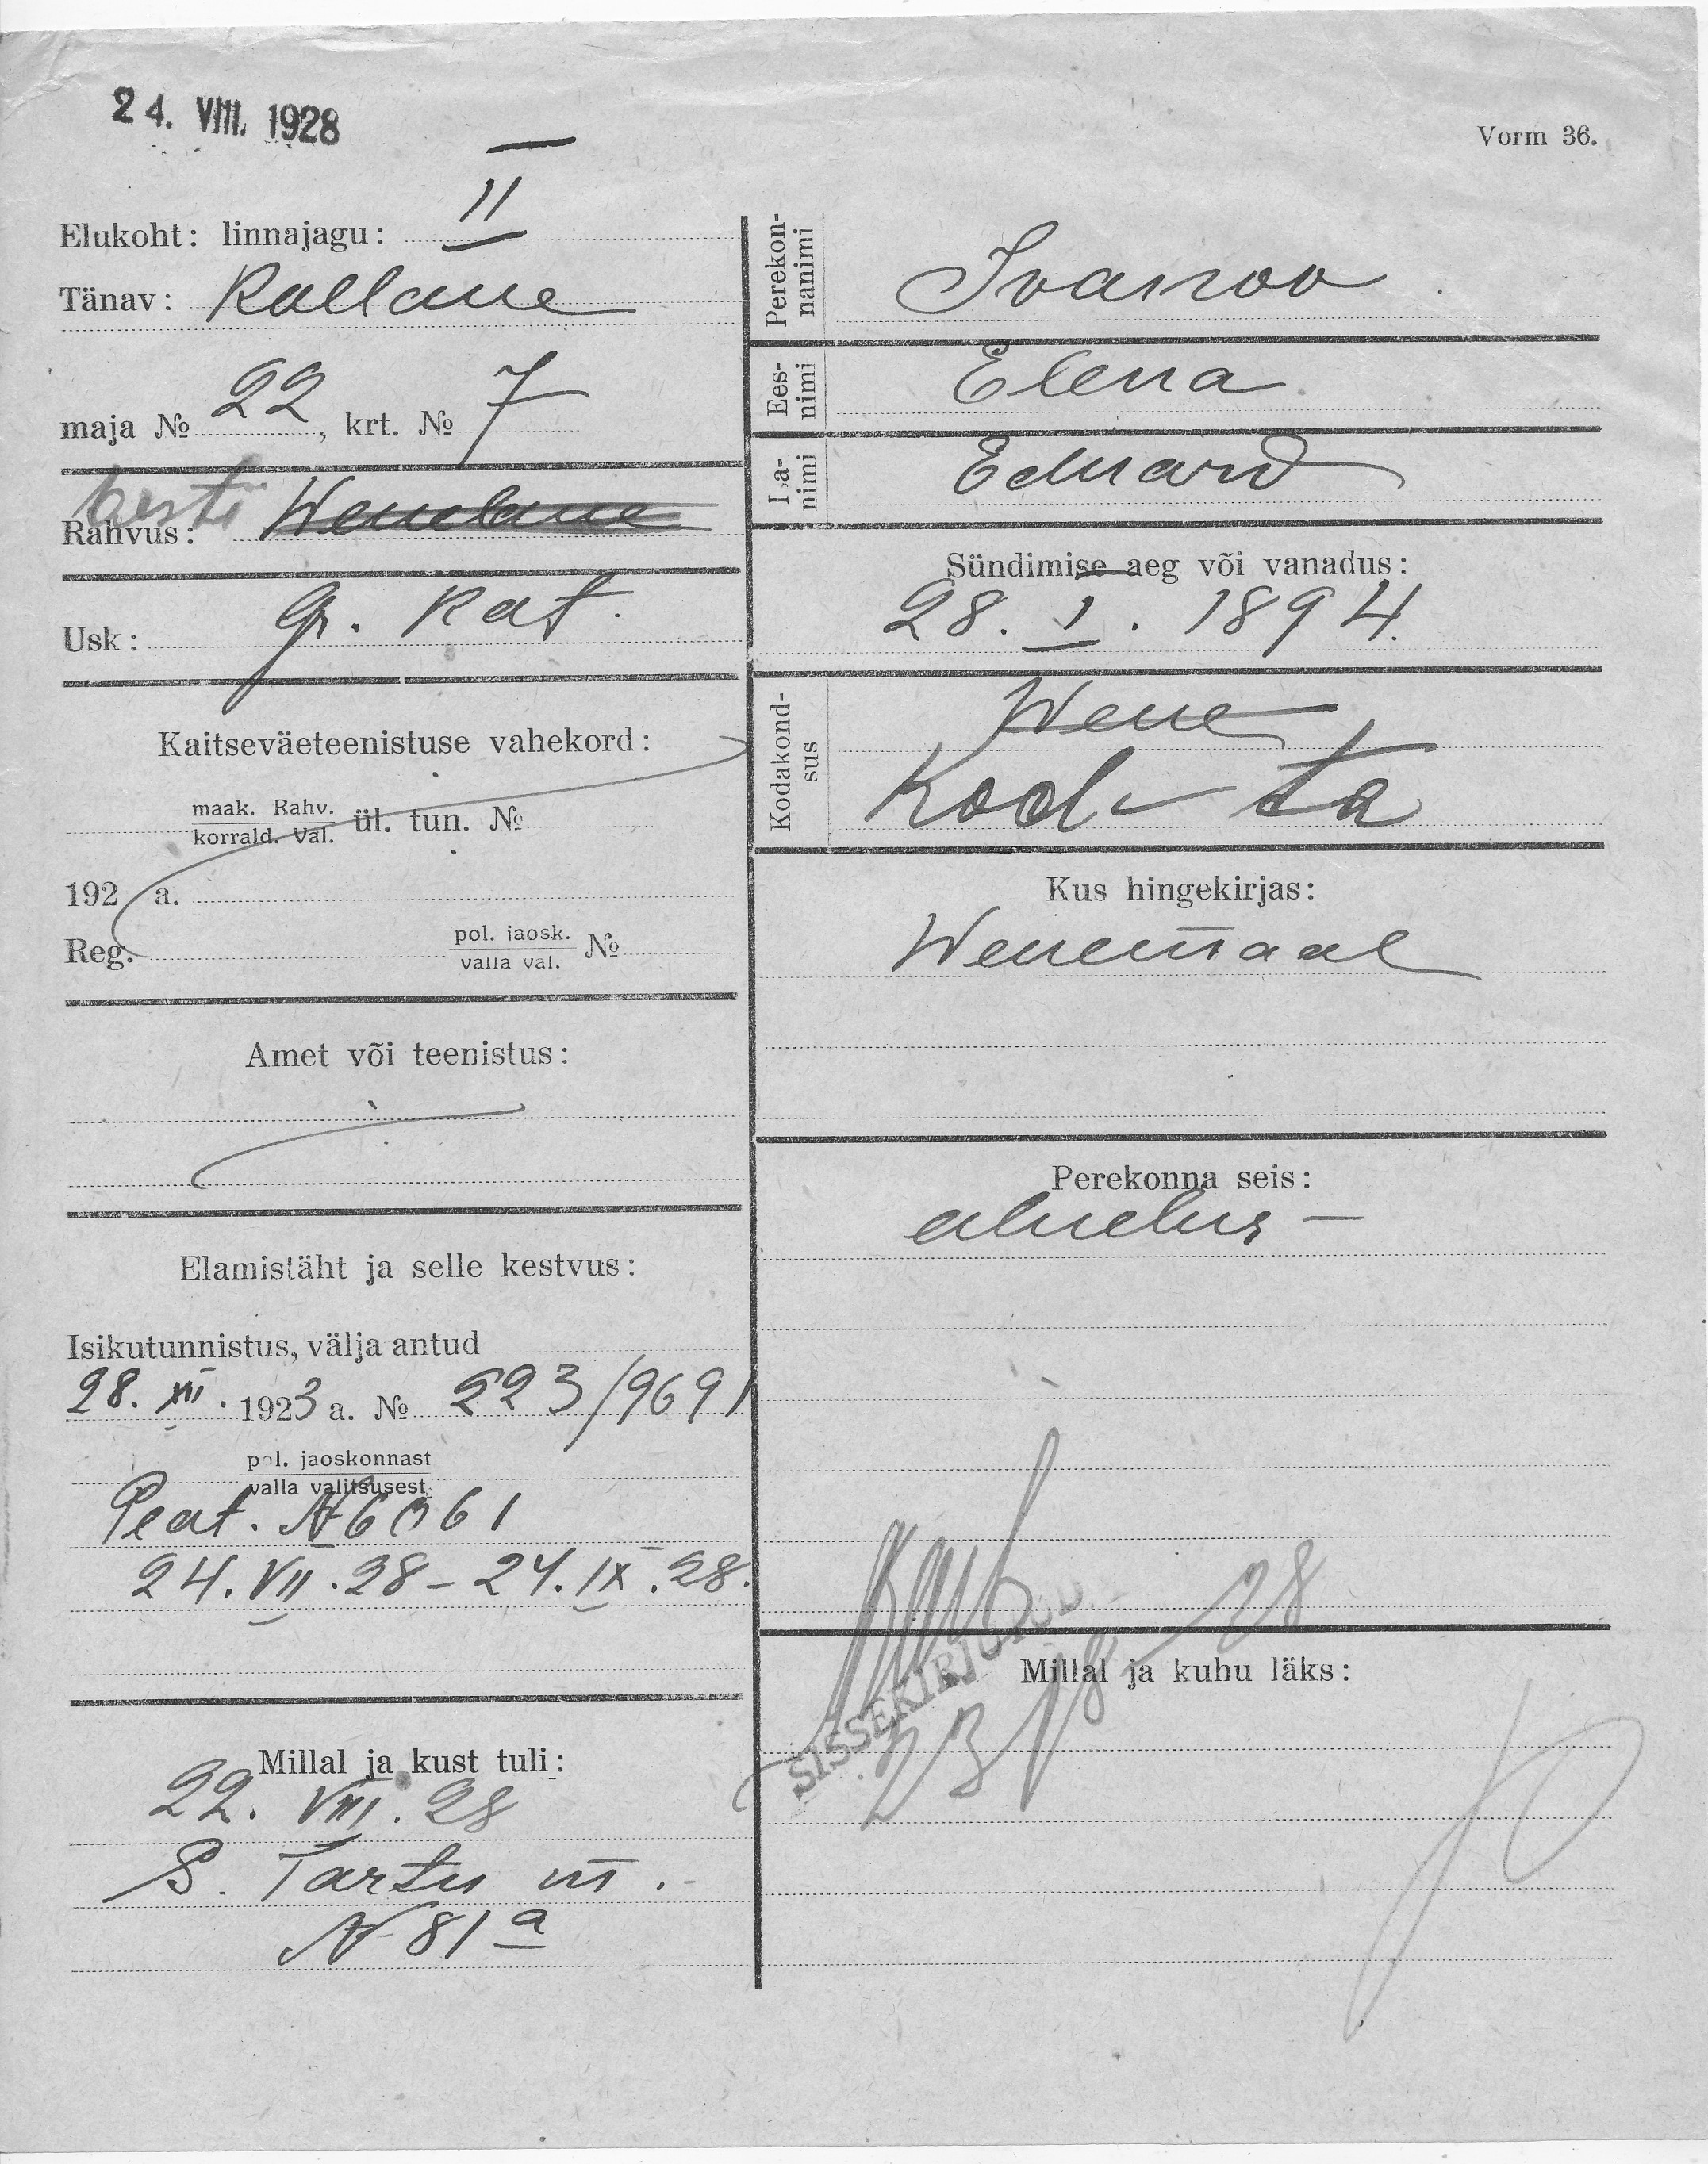 24. VIII. 1928
Vorm 36.
Elukoht: linnajagu: II
Tänav: Kollane
maja № 22, krt. № 7
Rahvus: eesti Wenelane
Usk: gr. kat.
Kaitseväeteenistuse vahekord:
maak. Rahv.
korrald. Val. ül. tun. №
192 a.
Reg. pol. jaosk. №
valla val.
Amet või teenistus:
Elamistäht ja selle kestvus:
Isikutunnistus, välja antud
28. XII. 1923 a. № 223/9691
pol. jaoskonnast
valla valitsusest
Peat. №
24. VII. 28 – 24. IX. 28.
Millal ja kust tuli:
22. VIII. 28
S. Tartu m.
N 81 a
Perekon-
nanimi Ivanov
Ees-
nimi Elena
Isa-
nimi Eduard
Sündimise aeg või vanadus:
28. I. 1894.
Kodakond-
sus Wene
Kod-ta
Kus hingekirjas:
Wenemaal
Perekonna seis:
abielus –
SISSEKIRJUTUD
23 18 – 28
Millal ja kuhu läks: